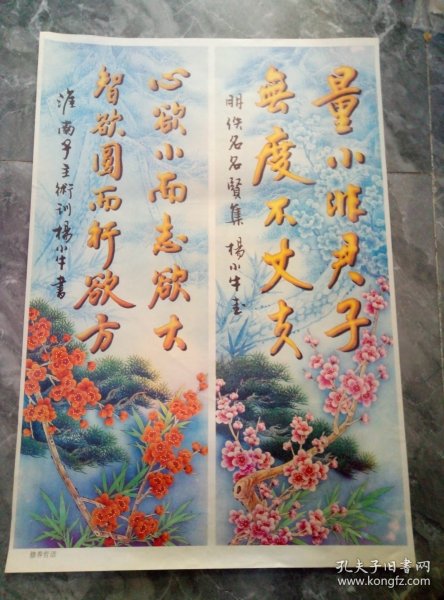 量小非君子
無度不丈夫
明佚名名賢集 楊小牛書
心欲小而志欲大
智欲圓而行欲方
淮南子主術訓 楊小牛書
孔夫子旧书网
www.kongfz.com